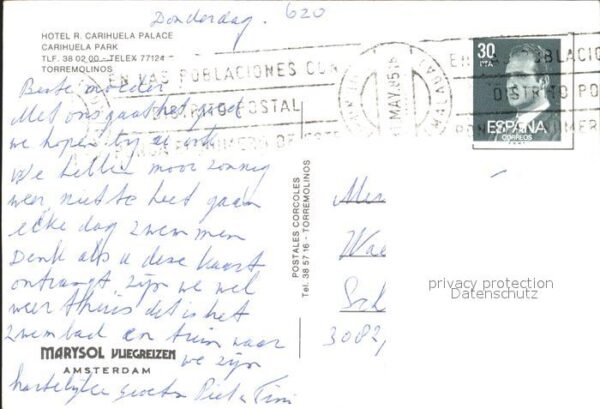 Donderdag. 620
HOTEL R. CARIHUELA PALACE
CARIHUELA PARK
TLF. 38 02 00 - TELEX 77124 -
TORREMOLINOS
30
PTA
ESPAÑA
CORREOS
EN LAS POBLACIONES CON
DISTRITO POSTAL
MAY.85
MALAGA
Beste moeder
Met ons gaat het goed
we hopen bij u ook
We hebben mooi zonnig
weer niet te heet gaan
elke dag zwemmen
Denk als u deze kaart
ontvangt zijn we wel
weer thuis dit is het
zwembad en tuin waar
we zijn
hartelijke groeten Piet en Tini
MARYSOL VLIEGREIZEN
AMSTERDAM
POSTALES CORCOLES
Tel. 38 57 16 - TORREMOLINOS
Wae
Sch
3082,
privacy protection
Datenschutz